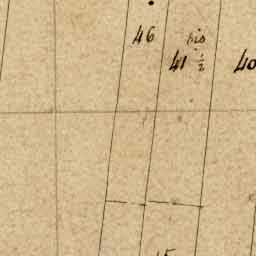 46
bis
41 1/2
40